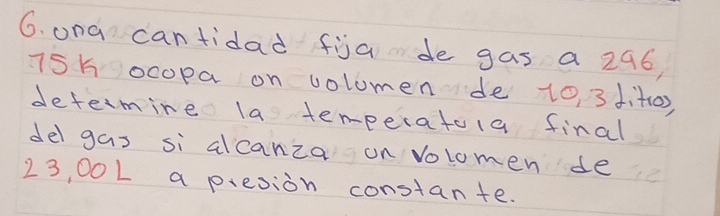 6. una cantidad fija de gas a 296,
75K ocupa un volumen de 10,3 litros,
determine la temperatura final
del gas si alcanza un volomen de
23,00L a presión constante.